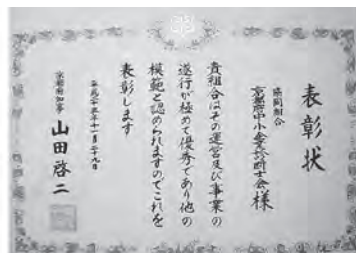 表彰状
協同組合
京都府中小企業診断士会様
貴組合はその運営及び事業の
遂行が極めて優秀であり他の
模範と認められますのでこれを
表彰します
平成二十五年十一月二十九日
京都府知事
山田啓二